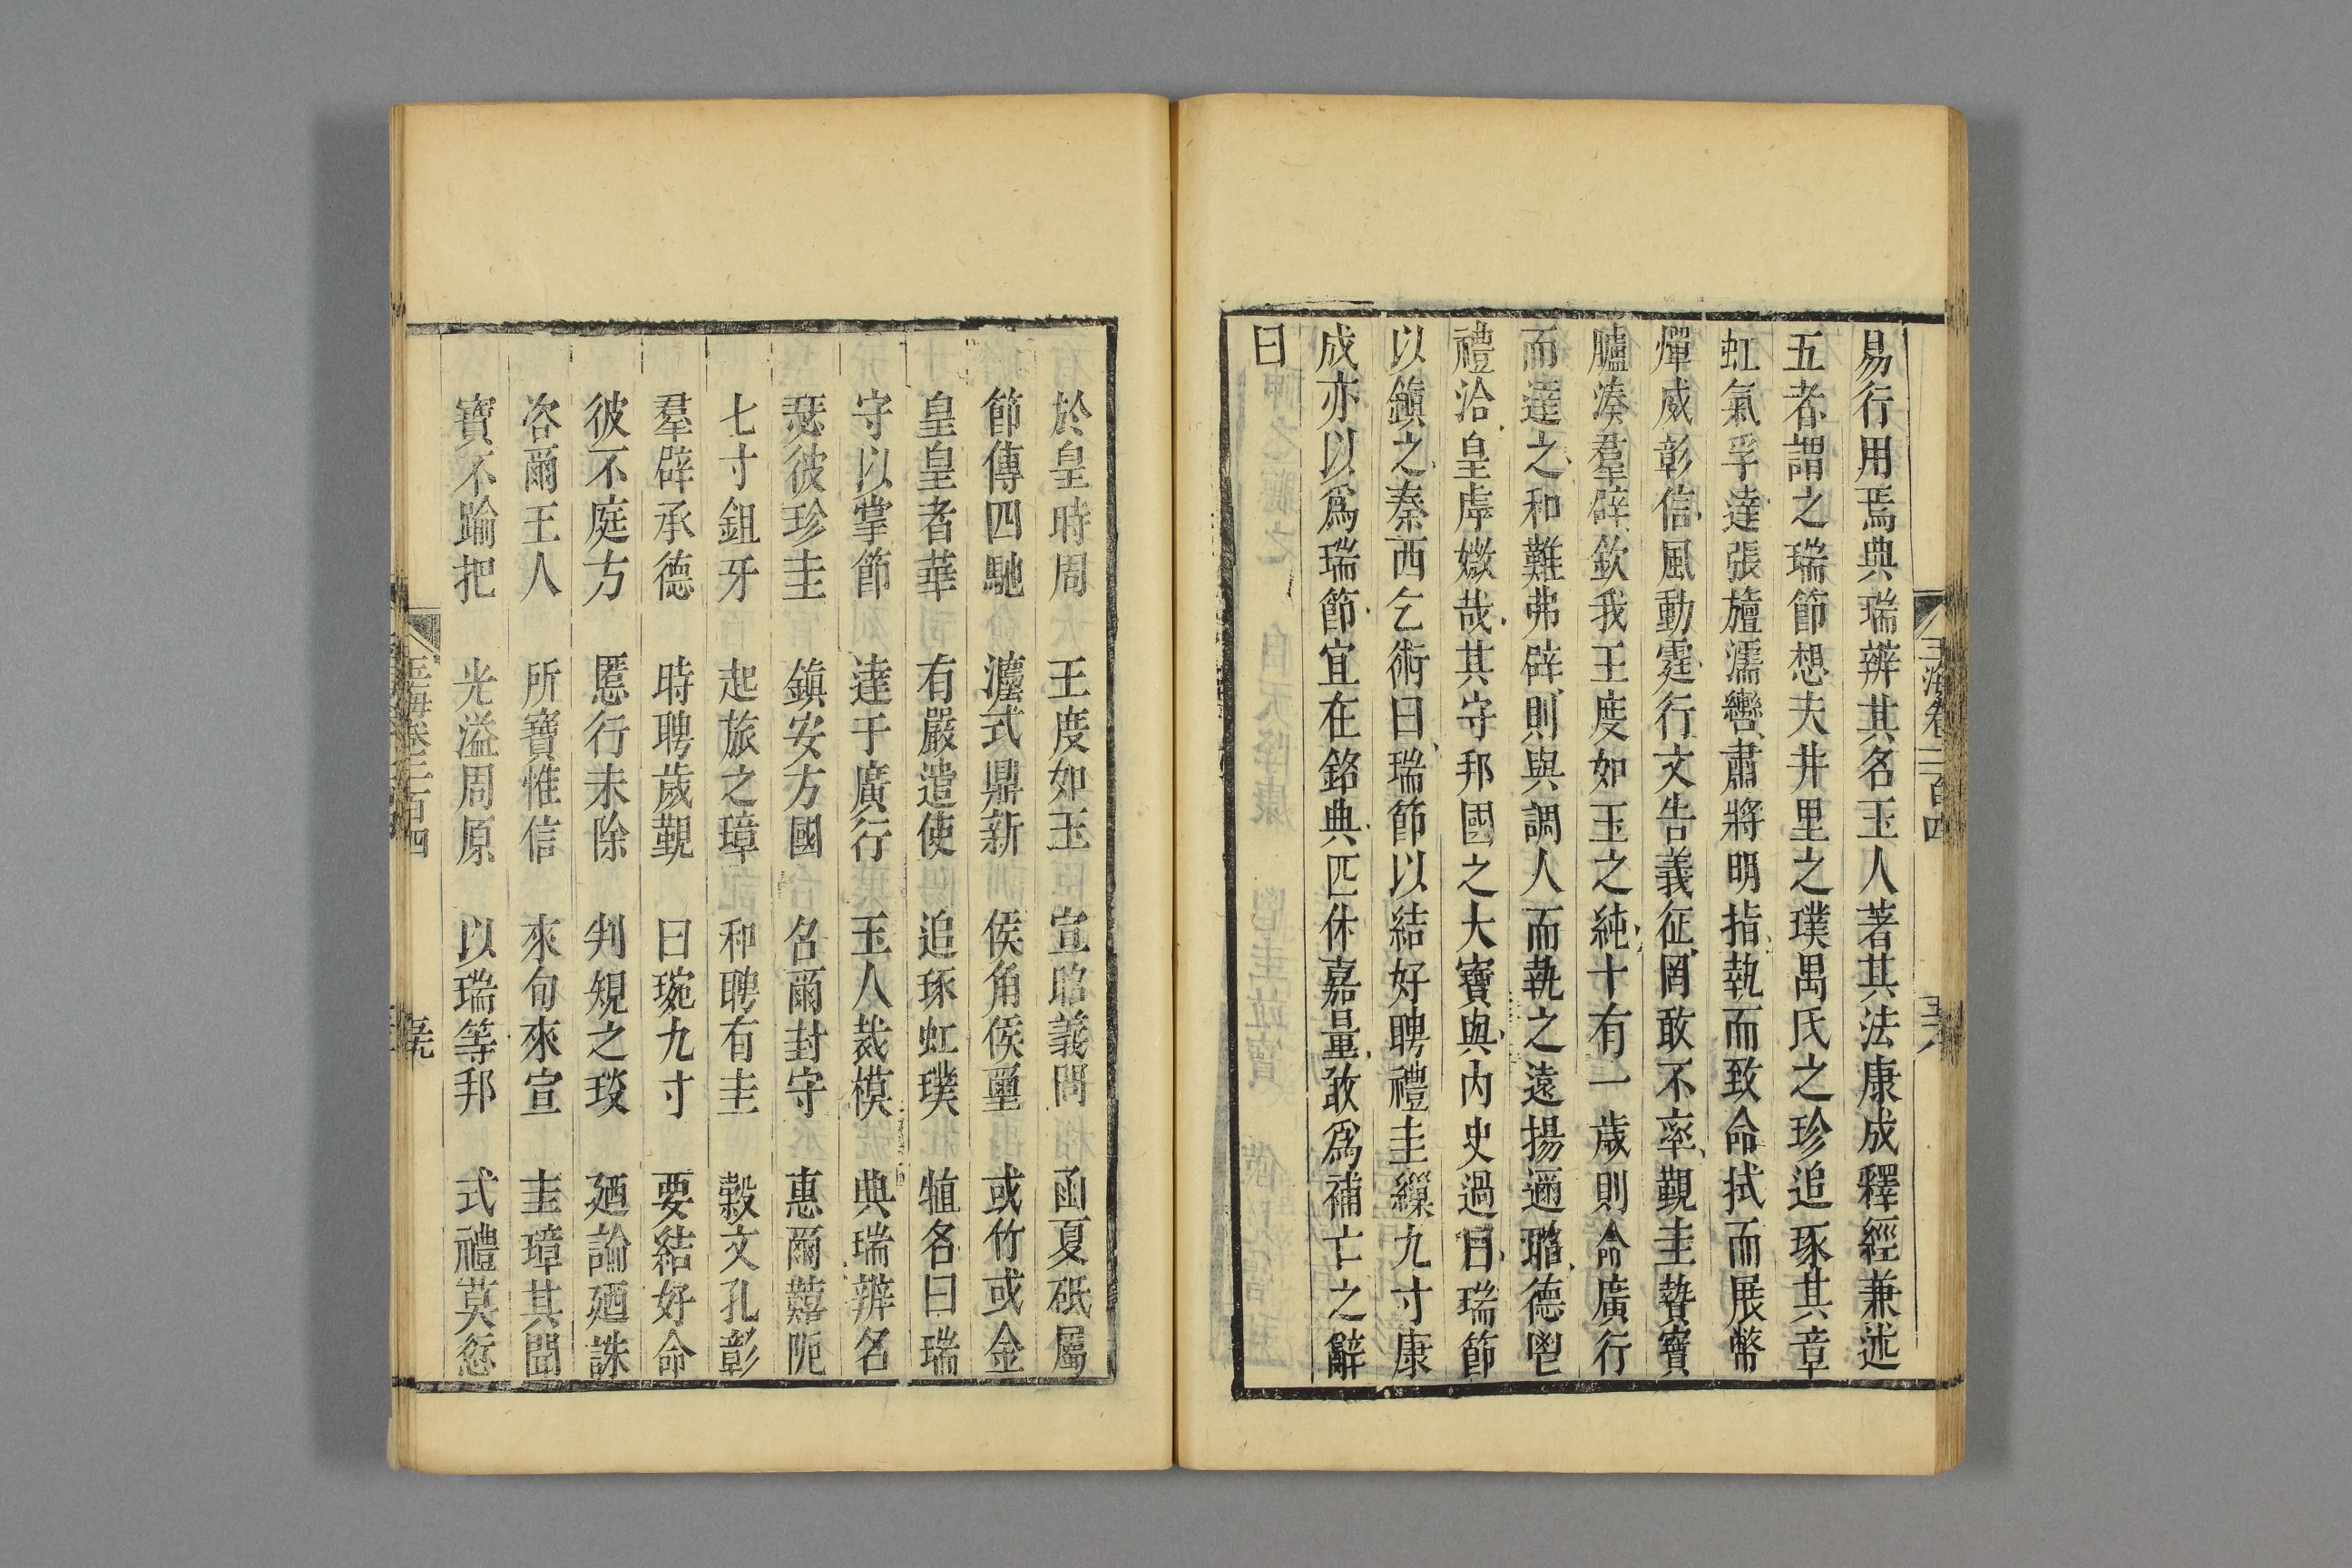 易行用焉典瑞辨其名玉人著其法康成釋經兼述
五者謂之瑞節想夫井里之璞禺氏之珍追琢其章
虹氣孚達張旜濡轡肅將明指執而致命拭而展幣
燀威彰信風動霆行文告義征罔敢不率覲圭贄寶
臚湊羣辟欽我王度如玉之純十有一歲則命廣行
而達之和難弗辟則與調人而執之遠揚邇聸德鬯
禮洽皇虖媺哉其守邦國之大寶與內史過曰瑞節
以鎭之秦西乞術曰瑞節以結好聘禮圭繅九寸康
成亦以爲瑞節宜在銘典匹休嘉量敢爲補亡之辭
曰
玉海卷二百四
於皇時周 王度如玉 宣昭義問 函夏砥屬
節傳四馳 瀍式鼎新 侯角侯璽 或竹或金
皇皇者華 有嚴遣使 追琢虹璞 犆名曰瑞
守以掌節 達于廣行 玉人裁模 典瑞辨名
瑟彼珍圭 鎭安方國 名爾封守 惠爾囏阨
七寸鉏牙 起旅之璋 和聘有圭 榖文孔彰
羣辟承德 時聘歲覲 曰琬九寸 要結好命
彼不庭方 慝行未除 判規之琰 廼論廼誅
咨爾王人 所寶惟信 來旬來宣 圭璋其聞
寶不踰把 光溢周原 以瑞等邦 式禮莫愆
玉海卷二百四